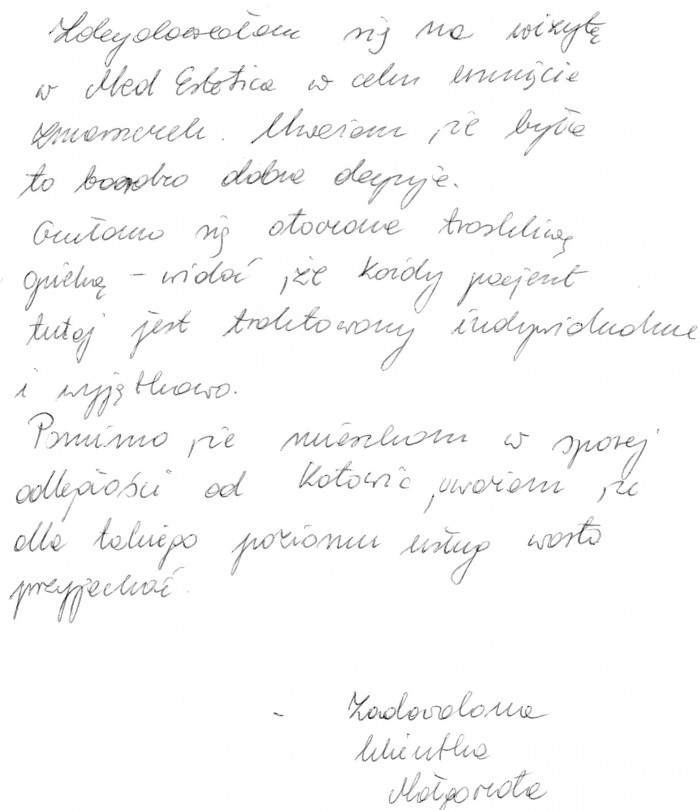 Zdecydowałam się na wizytę
w Med Estetica w celu usunięcie
zmarszczek. Uważam, że była
to bardzo dobra decyzja.
Czułam się otoczona troskliwą
opieką – widać, że każdy pacjent
tutaj jest traktowany indywidualnie
i wyjątkowo.
Pomimo, że mieszkam w sporej
odległości od Katowic, uważam, że
dla takiego poziomu usług warto
przyjechać.
- Zadowolona
klientka
Małgorzata